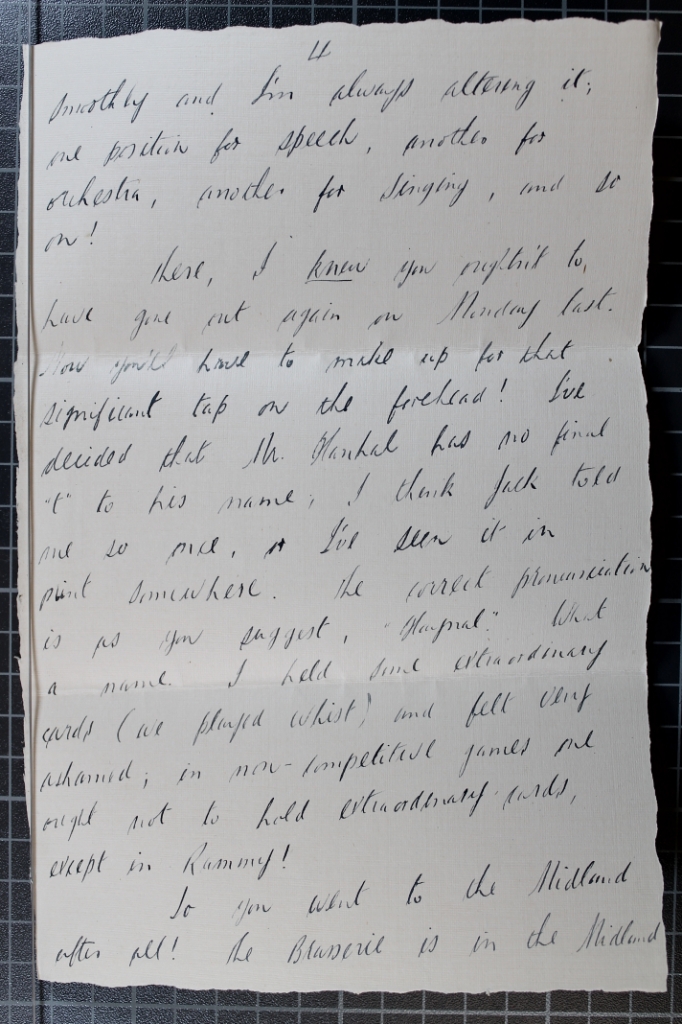 4
smoothly and I'm always altering it;
one position for speech, another for
orchestra, another for singing, and so
on!
There, I knew you oughtn't to,
have gone out again on Monday last.
Now you'll have to make up for that
significant tap on the forehead! I've
decided that Mr. has no final
"t" to his name; I think Jack told
me so once, or I've seen it in
print somewhere. The correct pronunciation
is as you suggest, What
a name. I held some extraordinary
cards (we played whist) and felt very
ashamed; in non-competitive games one
ought not to hold extraordinary cards,
except in Rummy!
So you went to the Midland
after all! The Brasserie is in the Midland